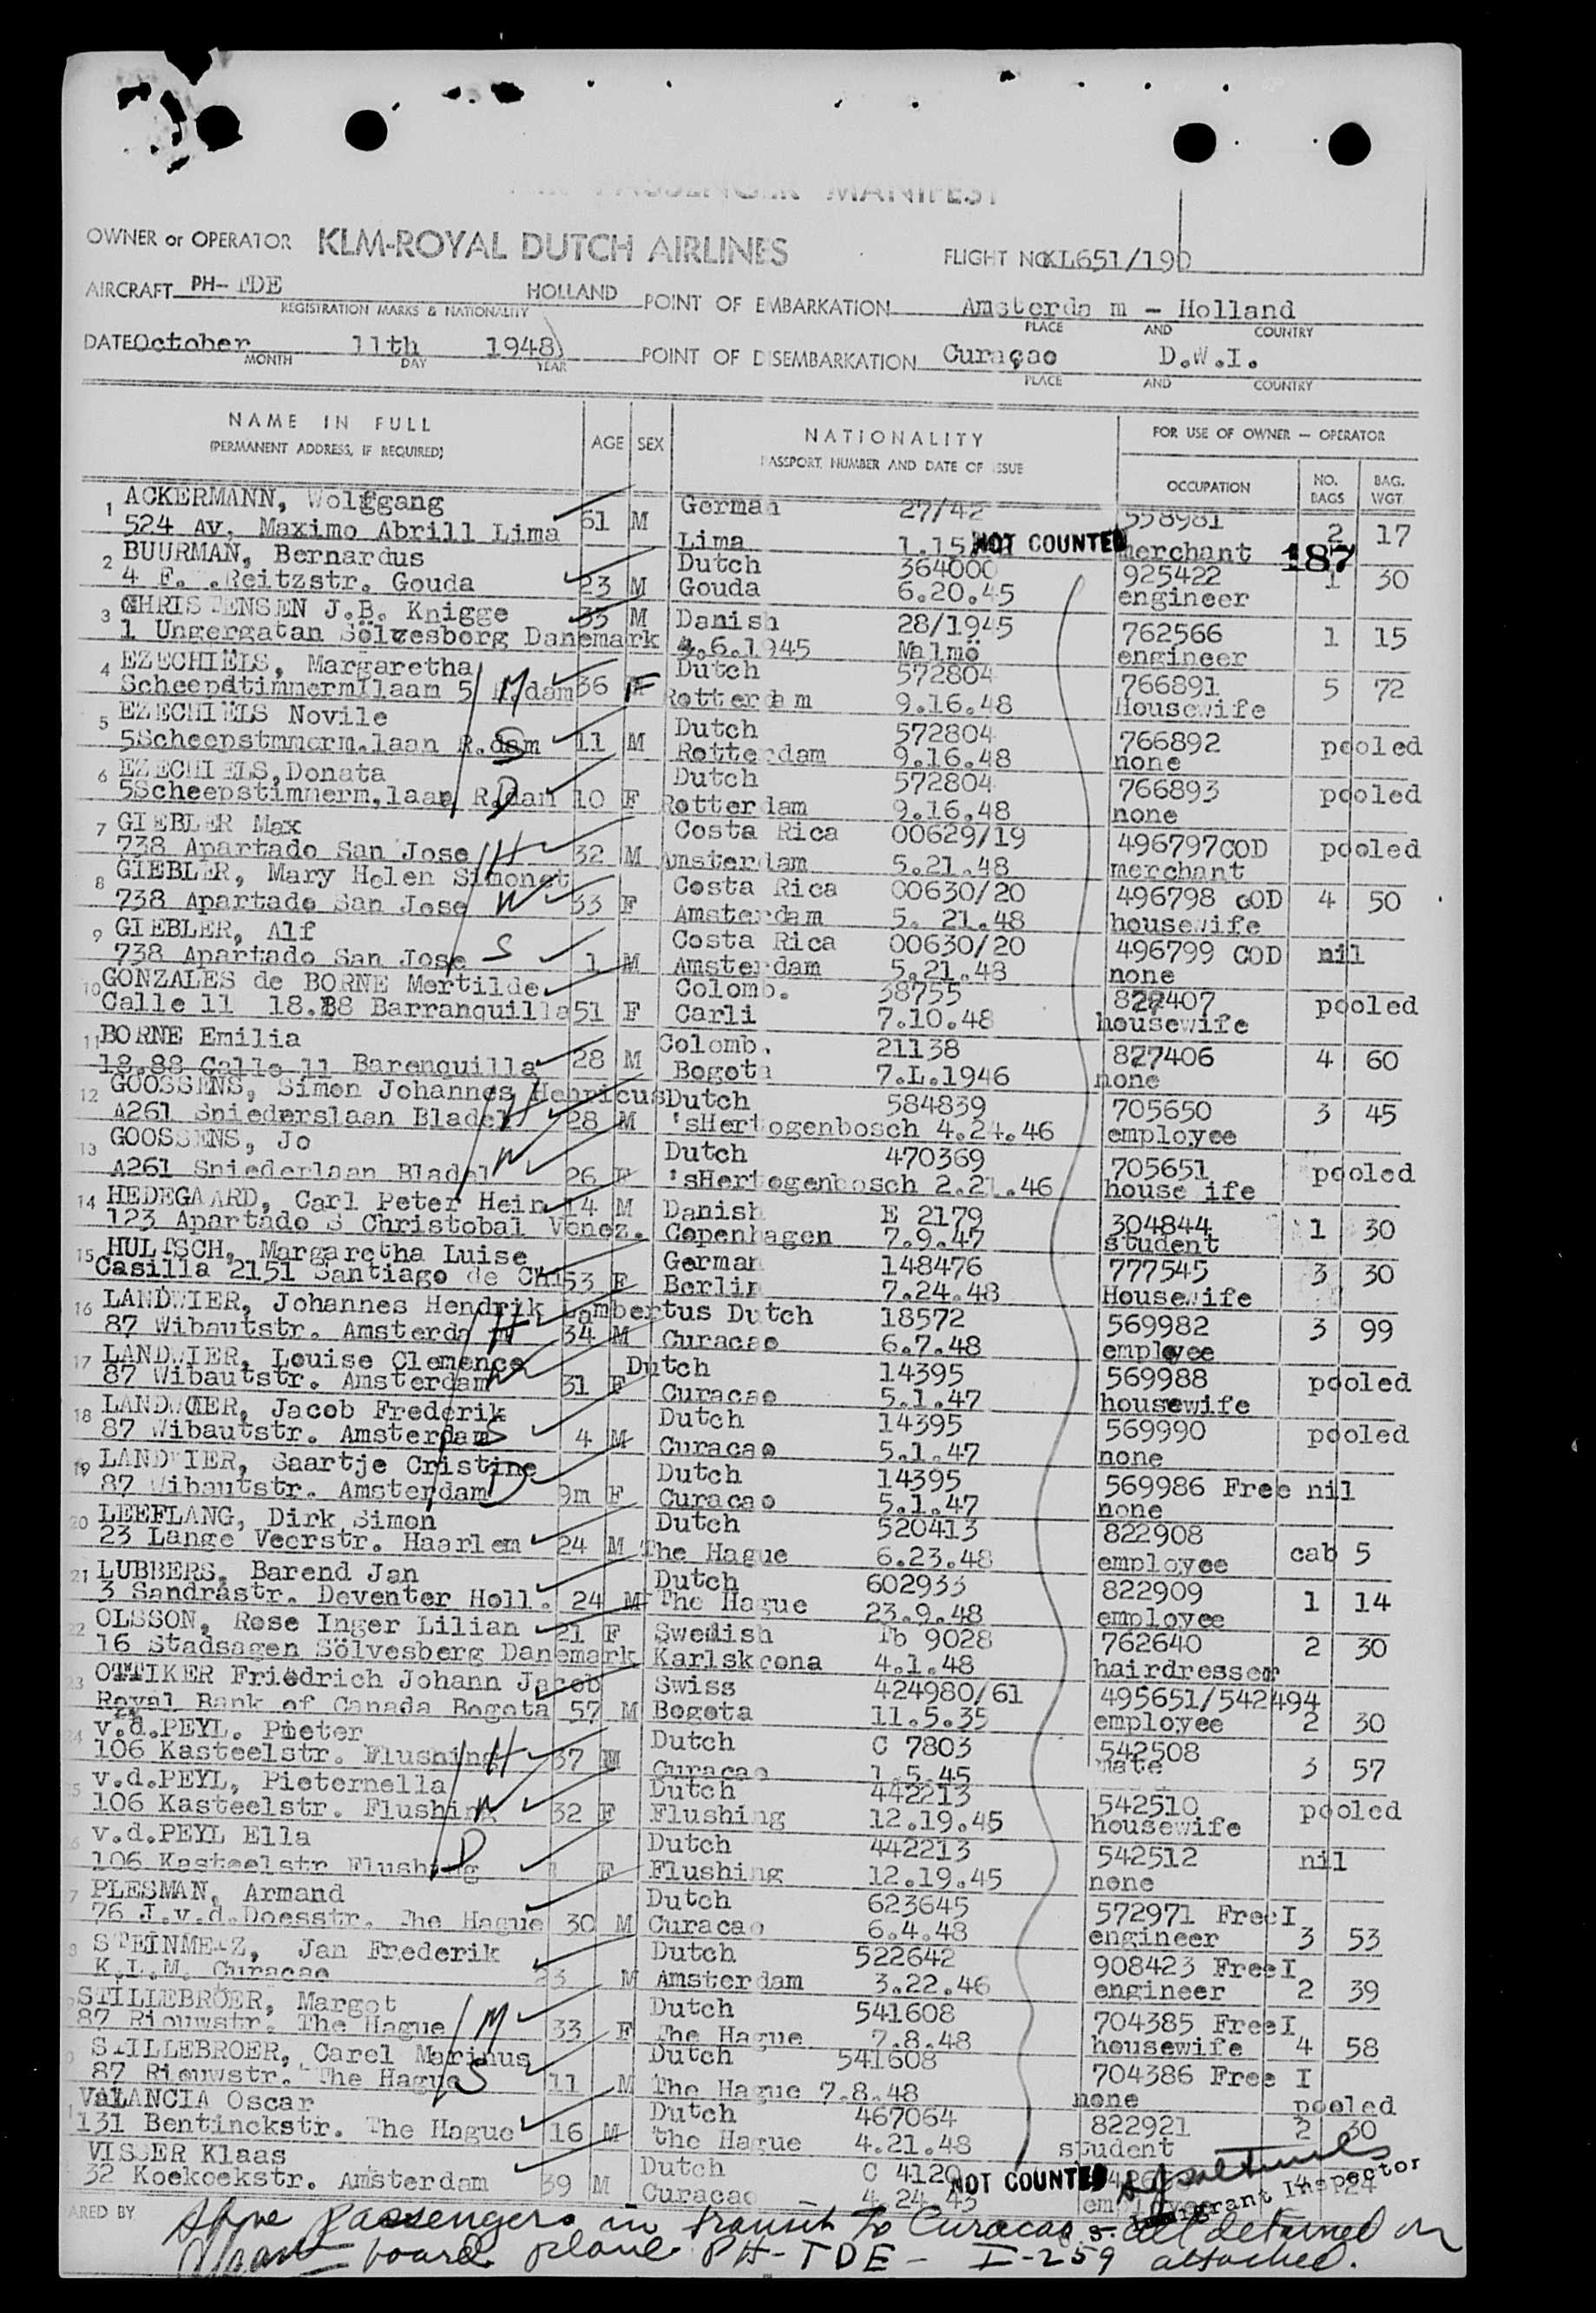 PASSENGER MANIFEST
OWNER or OPERATOR KLM-ROYAL DUTCH AIRLINES FLIGHT NO KL651/190
AIRCRAFT PH-TDE HOLLAND POINT OF EMBARKATION Amsterda m - Holland
REGISTRATION MARKS & NATIONALITY PLACE AND COUNTRY
DATE October 11th 1948 POINT OF DISEMBARKATION Curaçao D.W.I.
MONTH DAY YEAR PLACE AND COUNTRY
NAME IN FULL AGE SEX NATIONALITY FOR USE OF OWNER - OPERATOR
(PERMANENT ADDRESS, IF REQUIRED) PASSPORT NUMBER AND DATE OF ISSUE OCCUPATION NO. BAGS BAG. WGT.
1 ACKERMANN, Wolfggang 61 M German 27/42 558981 2 17
524 Av. Maximo Abrill Lima Lima NOT COUNTED merchant 187
2 BUURMAN, Bernardus 23 M Dutch 364000 925422 1 30
Reitzstr. Gouda Gouda 6.20.45 engineer
3 CHRISTENSEN J.B. Knigge 35 M Danish 28/1945 762566 1 15
1 Ungergatan Sölvesborg Danemark 4.6.1945 Malmö engineer
4 EZECHIËLS, Margaretha M 36 F Dutch 572804 766891 5 72
Scheepstimmermllaam 5 R.dam Rotterdam 9.16.48 Housewife
5 EZECHIËLS Novile S 11 M Dutch 572804 766892 pooled
5Scheepstmmerm.laan R.dam Rotterdam 9.16.48 none
6 EZECHIELS,Donata D 10 F Dutch 572804 766893 pooled
5Scheepstimmerm,laan R.dam Rotterdam 9.16.48 none
7 GIEBLER Max H 32 M Costa Rica 00629/19 496797COD pooled
738 Apartado San Jose Amsterdam 5.21.48 merchant
8 GIEBLER, Mary Helen Simonet W 33 F Costa Rica 00630/20 496798 COD 4 50
738 Apartado San Jose Amsterdam 5. 21.48 housewife
9 GIEBLER, Alf S 1 M Costa Rica 00630/20 496799 COD nil
738 Apartado San Jose Amsterdam 5.21.48 none
10 GONZALES de BORNE Mertilde 51 F Colomb. 38755 827407 pooled
Calle 11 18.88 Barranquilla Carli 7.10.48 housewife
11 BORNE Emilia 28 M Colomb. 21138 827406 4 60
18.88 Calle 11 Barenquilla Bogota 7.L.1946 none
12 GOOSSENS, Simon Johannes Henricus H 28 M Dutch 584839 705650 3 45
A261 Sniederslaan Bladel 'sHertogenbosch 4.24.46 employee
13 GOOSSENS, Jo W 26 F Dutch 470369 705651 pooled
A261 Sniederlaan Bladel 'sHertogenbosch 2.21.46 house ife
14 HEDEGAARD, Carl Peter Hein 14 M Danish E 2179 304844 1 30
123 Apartado S Christobal Venez. Copenhagen 7.9.47 student
15 HULTSCH, Margaretha Luise 53 F German 148476 777545 3 30
Casilla 2151 Santiago de Chi Berlin 7.24.48 Housewife
16 LANDWIER, Johannes Hendrik Lambertus H 34 M Dutch 18572 569982 3 99
87 Wibautstr. Amsterdam Curacao 6.7.48 employee
17 LANDWIER, Louise Clemence W 31 F Dutch 14395 569988 pooled
87 Wibautstr. Amsterdam Curacao 5.1.47 housewife
18 LANDWIER, Jacob Frederik S 4 M Dutch 14395 569990 pooled
87 Wibautstr. Amsterdam Curacao 5.1.47 none
19 LANDWIER, Saartje Cristine D 9m F Dutch 14395 569986 Free nil
87 Wibautstr. Amsterdam Curacao 5.1.47 none
20 LEEFLANG, Dirk Simon 24 M Dutch 520413 822908 cab 5
23 Lange Veerstr. Haarlem The Hague 6.23.48 employee
21 LUBBERS, Barend Jan 24 M Dutch 602933 822909 1 14
3 Sandrastr. Deventer Holl. The Hague 23.9.48 employee
22 OLSSON, Rose Inger Lilian 21 F Swedish Tb 9028 762640 2 30
16 Stadsagen Sölvesberg Danemark Karlskrona 4.1.48 hairdresser
23 OTTIKER Friedrich Johann Jacob 57 M Swiss 424980/61 495651/542494 2 30
Royal Bank of Canada Bogota Bogota 11.5.35 employee
24 v.d.PEYL. Pieter H 37 M Dutch C 7803 542508 3 57
106 Kasteelstr. Flushing Curacao 1.5.45 mate
5 v.d.PEYL, Pieternella W 32 F Dutch 442213 542510 pooled
106 Kasteelstr. Flushing Flushing 12.19.45 housewife
6 v.d.PEYL Ella D 1 F Dutch 442213 542512 nil
106 Kasteelstr Flushing Flushing 12.19.45 none
7 PLESMAN, Armand 30 M Dutch 623645 572971 FreeI 3 53
76 J.v.d.Doesstr. The Hague Curacao 6.4.48 engineer
8 STEINMETZ, Jan Frederik 23 M Dutch 522642 908423 FreeI 2 39
K.L.M. Curacao Amsterdam 3.22.46 engineer
STILLEBROER, Margot M 33 F Dutch 541608 704385 FreeI 4 58
87 Riouwstr. The Hague The Hague 7.8.48 housewife
STILLEBROER, Carel Marinus S 11 M Dutch 541608 704386 Free I
87 Riouwstr. The Hague The Hague 7.8.48 none pooled
1 VALANCIA Oscar 16 M Dutch 467064 822921 2 30
131 Bentinckstr. The Hague the Hague 4.21.48 student
VISSER Klaas 39 M Dutch C 4120 NOT COUNTED 24
32 Koekoekstr. Amsterdam Curacao 4.24.45 Immigrant Inspector
ARED BY Above passengers in transit to Curacao - all detained on
board plane PH-TDE - I-259 attached.